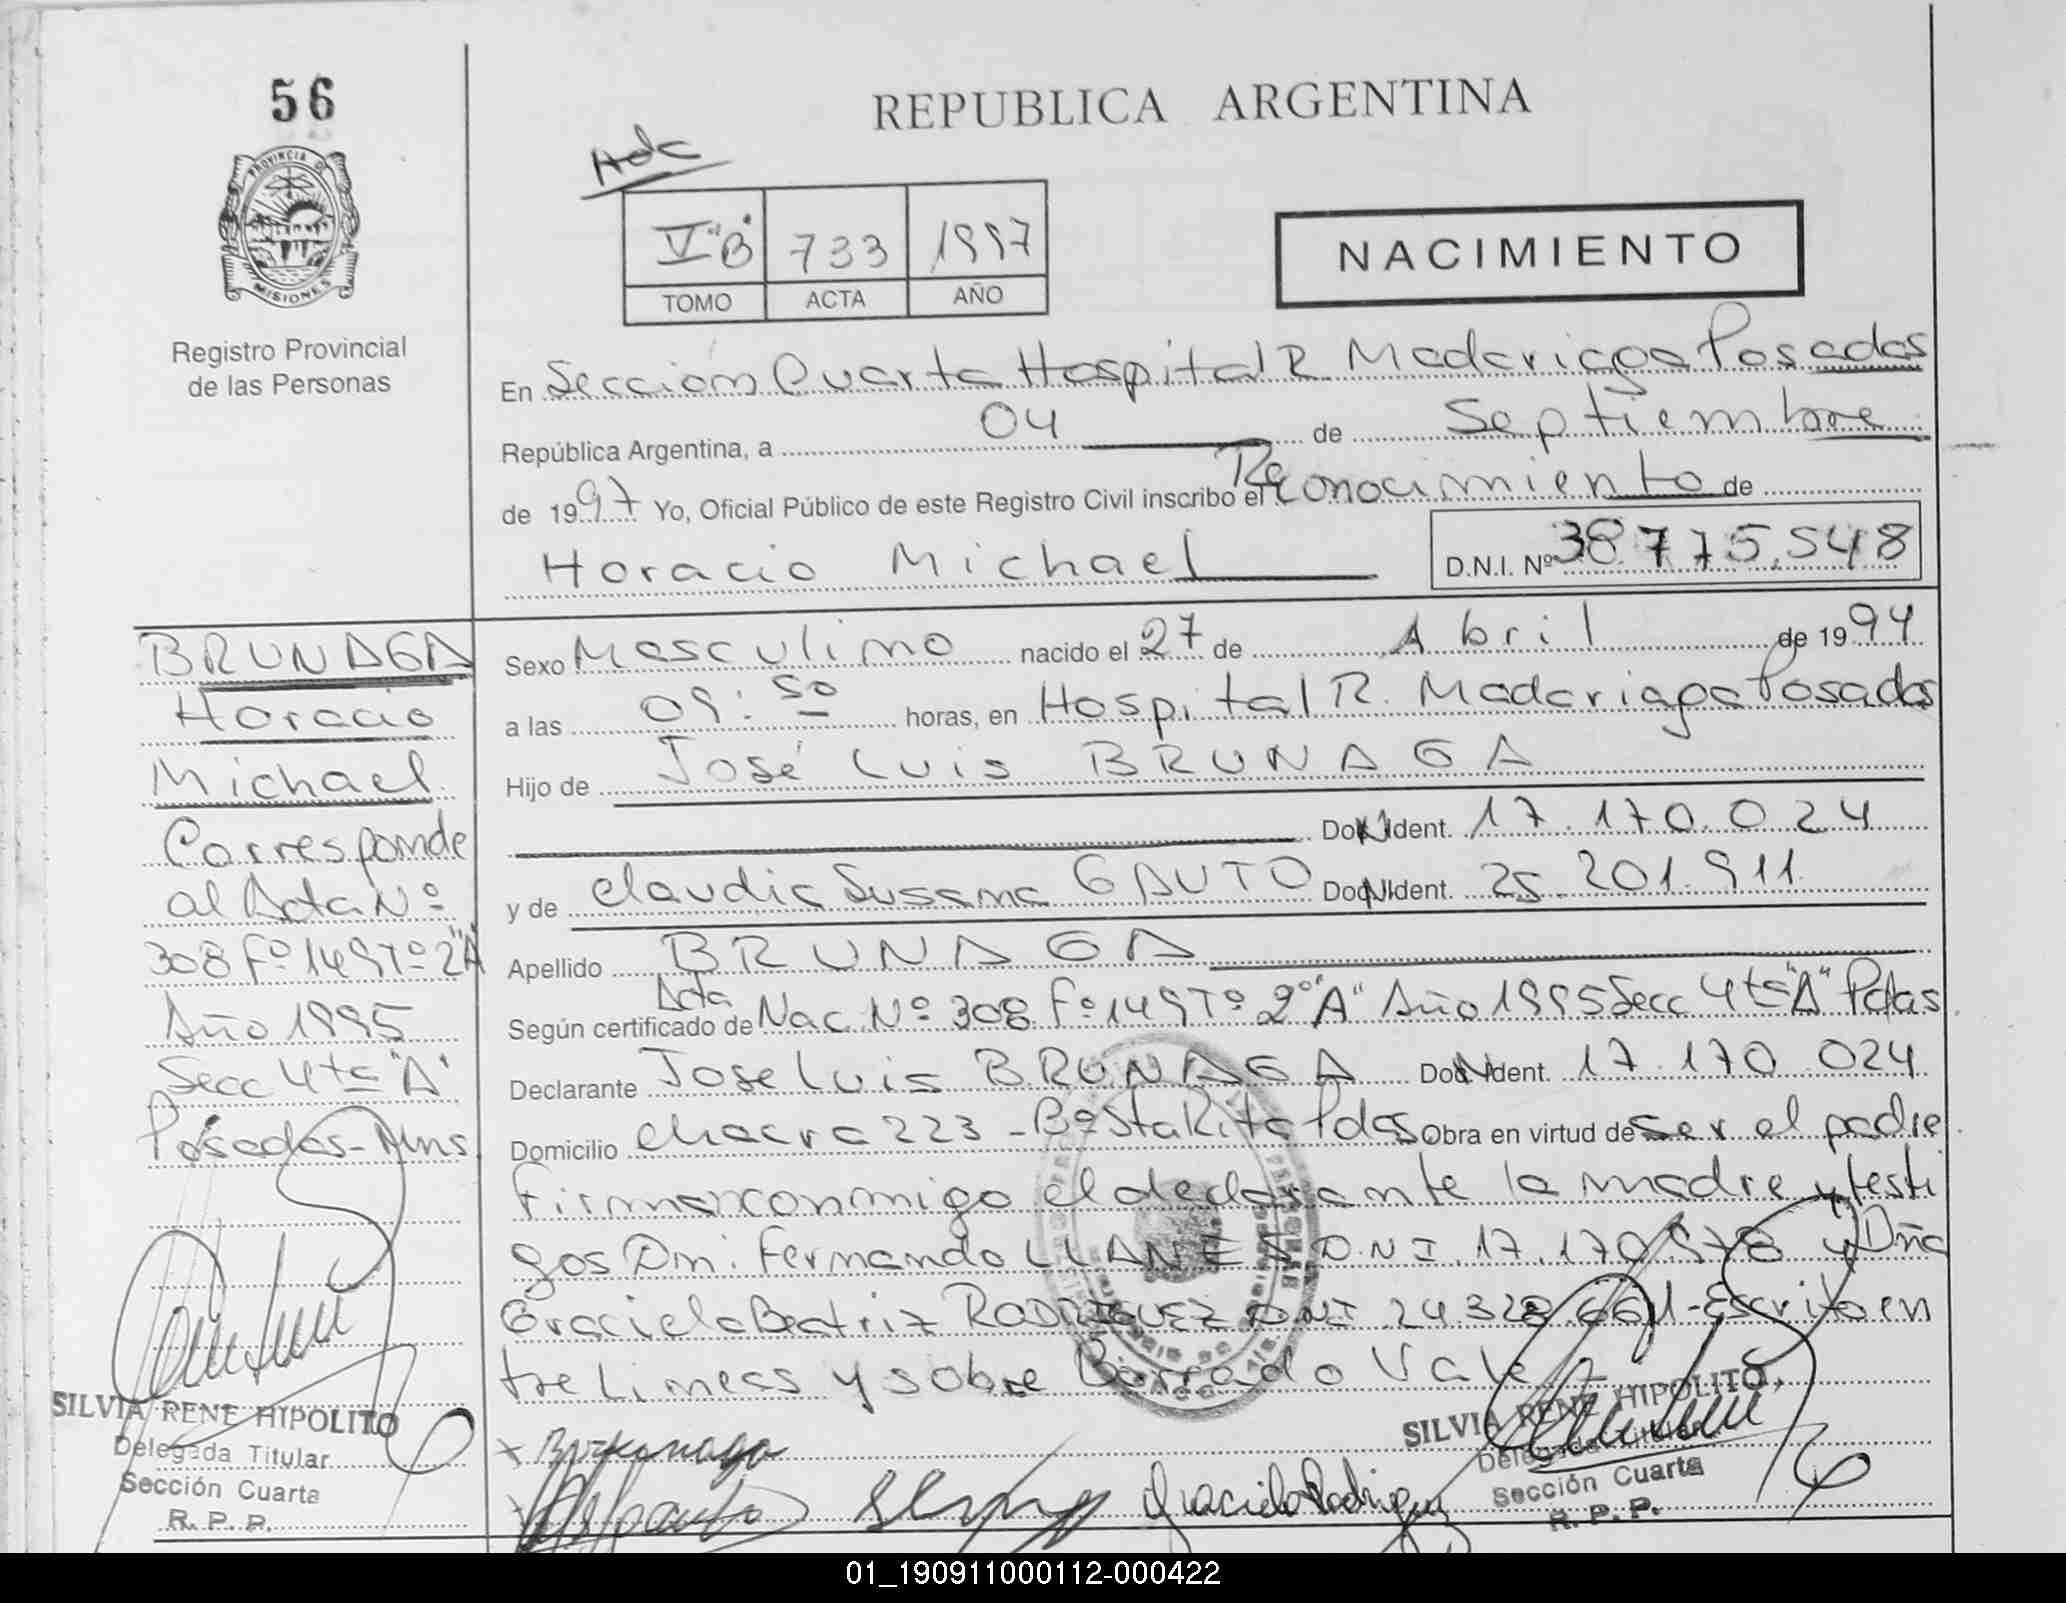 56
REPUBLICA ARGENTINA
PROVINCIA DE
MISIONES
V "B" 733 1997
TOMO ACTA AÑO
NACIMIENTO
Registro Provincial
de las Personas
En Sección Cuarta Hospital R. Madariaga Posadas
República Argentina, a 04 de Septiembre
de 1997 Yo, Oficial Público de este Registro Civil inscribo el Reconocimiento de
Horacio Michael D.N.I. Nº 38.775.548
BRUNAGA
Horacio
Michael
Corresponde
al Acta Nº
308 Fº 149 Tº 2º "A"
Año 1995
Secc 4ta "A"
Posadas-Mns
Sexo Masculino nacido el 27 de Abril de 1994
a las 09:50 horas, en Hospital R. Madariaga Posadas
Hijo de José Luis BRUNAGA
Doc. Ident. 17.170.024
y de Claudia Susana GAUTO Doc. Ident. 25.201.911
Apellido BRUNAGA
Acta
Según certificado de Nac. Nº 308 Fº 149 Tº 2º "A" Año 1995 Secc 4ta "A" Pdas
Declarante Jose Luis BRUNAGA Doc. Ident. 17.170.024
Domicilio Chacra 223 - Bº Sta Rita Pdas Obra en virtud de ser el padre
Firman conmigo el declarante la madre y testi
gos Dn. Fernando LLANES D.N.I. 17.170.978 y Dña
Graciela Beatriz RODRIGUEZ DNI 24.328.661 - Escrito en
tre lineas y sobre Borrado Vale
SILVIA RENE HIPOLITO
Delegada Titular
Sección Cuarta
R. P. P.
Graciela Rodriguez
SILVIA RENE HIPOLITO
Delegada Titular
Sección Cuarta
R. P. P.
01_190911000112-000422